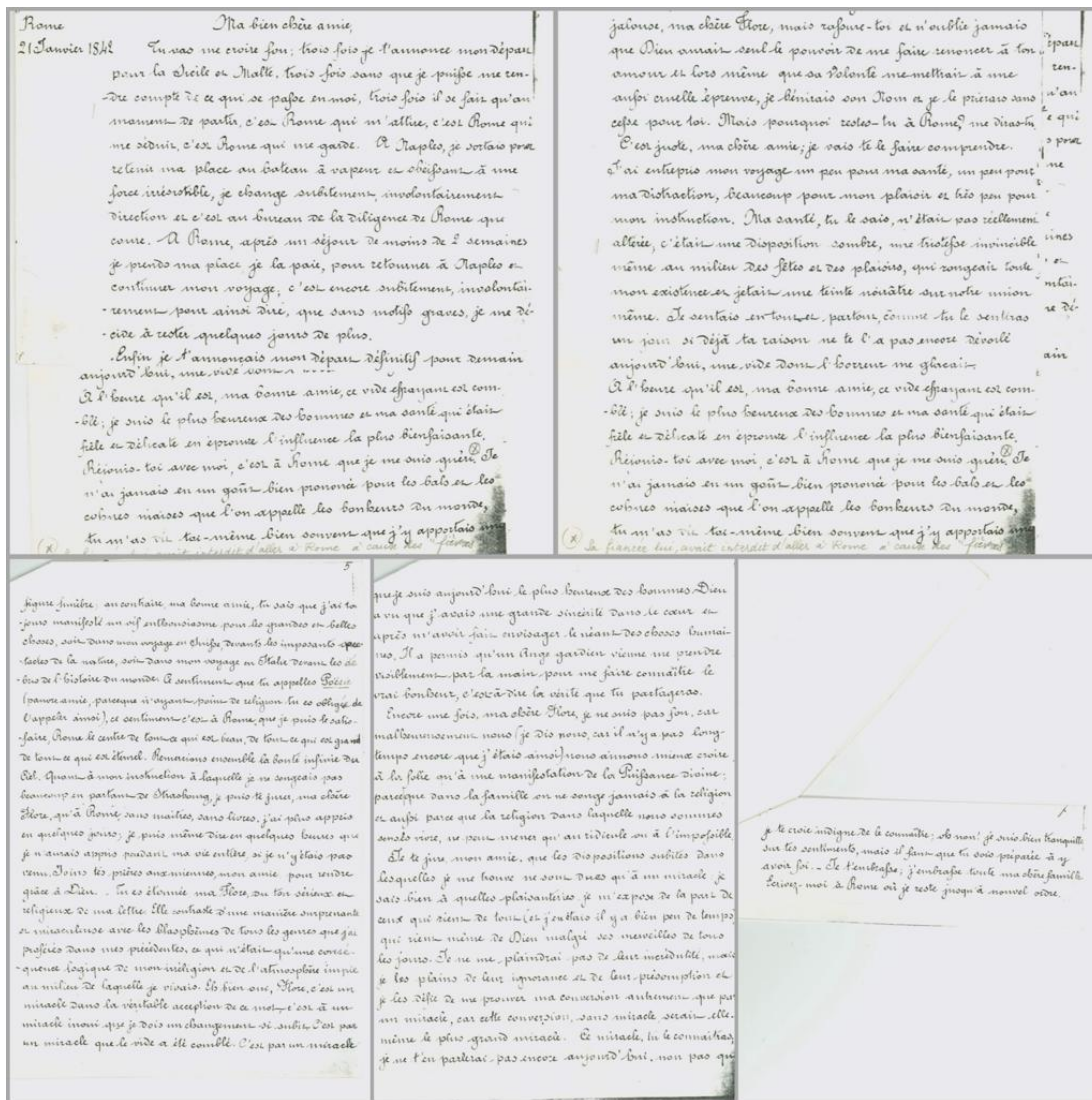 Rome
Ma bien chère amie,
21 Janvier 1842
Tu vas me croire fou; trois fois je t'annonce mon départ
pour la Sicile et Malte, trois fois sans que je puisse me ren-
-dre compte de ce qui se passe en moi, trois fois il se fait qu'au
moment de partir, c'est Rome qui m'attire, c'est Rome qui
me séduit, c'est Rome qui me garde. À Naples, je sortais pour
retenir ma place au bateau à vapeur et obéissant à une
force irrésistible, je change subitement, involontairement
direction et c'est au bureau de la diligence de Rome que
cours. À Rome, après un séjour de moins de 2 semaines
je prends ma place je la paie, pour retourner à Naples et
continuer mon voyage; c'est encore subitement, involontai-
-rement pour ainsi dire, que sans motifs graves, je me dé-
-cide à rester quelques jours de plus.
Enfin je t'annonçais mon départ définitif pour demain
aujourd'hui, une vide
À l'heure qu'il est, ma bonne amie, ce vide effrayant est com-
-blé; je suis le plus heureux des hommes et ma santé qui était
frêle et délicate en éprouve l'influence la plus bienfaisante.
Réjouis-toi avec moi, c'est à Rome que je me suis guéri. Je
n'ai jamais eu un goût bien prononcé pour les bals et les
cohues niaises que l'on appelle les bonheurs du monde,
tu m'as dit toi-même bien souvent que j'y apportais une
(x) Sa fiancée lui avait interdit d'aller à Rome à cause des fièvres
jalouse, ma chère Flore, mais rassure-toi et n'oublie jamais
que Dieu aurait seul le pouvoir de me faire renoncer à ton
amour et lors même que sa volonté me mettrait à une
aussi cruelle épreuve, je bénirais son Nom et je le prierais sans
cesse pour toi. Mais pourquoi restes-tu à Rome? me diras-tu
C'est juste, ma chère amie; je vais te le faire comprendre.
J'ai entrepris mon voyage un peu pour ma santé, un peu pour
ma distraction, beaucoup pour mon plaisir et très peu pour
mon instruction. Ma santé, tu le sais, n'était pas réellement
altérée, c'était une disposition sombre, une tristesse invincible
même au milieu des fêtes et des plaisirs, qui rongeait toute
mon existence et jetait une teinte noirâtre sur notre union
même. Je sentais en tout et partout, comme tu le sentiras
un jour si déjà ta raison ne te l'a pas encore dévoilé
aujourd'hui, une vide dont l'horreur me glaçait.
À l'heure qu'il est, ma bonne amie, ce vide effrayant est com-
-blé; je suis le plus heureux des hommes et ma santé qui était
frêle et délicate en éprouve l'influence la plus bienfaisante.
Réjouis-toi avec moi, c'est à Rome que je me suis guéri. Je
n'ai jamais eu un goût bien prononcé pour les bals et les
cohues niaises que l'on appelle les bonheurs du monde,
tu m'as dit toi-même bien souvent que j'y apportais une
(x) Sa fiancée lui avait interdit d'aller à Rome à cause des fièvres
5
figure funèbre; au contraire, ma bonne amie, tu sais que j'ai tou
jours manifesté un vif enthousiasme pour les grandes et belles
choses, soit dans mon voyage en Suisse, devant les imposants spec-
tacles de la nature, soit dans mon voyage en Italie devant les dé-
-bris de l'histoire du monde. Ce sentiment que tu appelles Poésie
(pauvre amie, parceque n'ayant point de religion tu es obligée de
l'appeler ainsi), ce sentiment c'est à Rome, que je puis le satis-
-faire, Rome le centre de tout ce qui est beau, de tout ce qui est grand
de tout ce qui est éternel. Remercions ensemble la bonté infinie du
Ciel. Quant à mon instruction à laquelle je ne songeais pas
beaucoup en partant de Strasbourg, je puis te jurer, ma chère
Flore, qu'à Rome, sans maîtres, sans livres, j'ai plus appris
en quelques jours; je puis même dire en quelques heures que
je n'aurais appris pendant ma vie entière, si je n'y étais pas
venu. Joins tes prières aux miennes, mon amie, pour rendre
grâce à Dieu. – Tu es étonnée ma Flore, du ton sérieux et
religieux de ma lettre. Elle contraste d'une manière surprenante
et miraculeuse avec les blasphèmes de tous les genres que j'ai
proférés dans mes précédentes, ce qui n'était qu'une consé-
-quence logique de mon irréligion et de l'atmosphère impie
au milieu de laquelle je vivais. Eh bien oui, Flore, c'est un
miracle dans la véritable acception de ce mot, c'est à un
miracle inouï que je dois un changement si subit. C'est par
un miracle que le vide a été comblé. C'est par un miracle
que je suis aujourd'hui le plus heureux des hommes. Dieu
a vu que j'avais une grande sincérité dans le cœur et
après m'avoir fait envisager le néant des choses humai-
nes, Il a permis qu'un Ange gardien vienne me prendre
visiblement par la main pour me faire connaître le
vrai bonheur, c'est à dire la vérité que tu partageras.
Encore une fois, ma chère Flore, je ne suis pas fou, car
malheureusement nous (je dis nous, car il n'y a pas long-
temps encore que j'étais ainsi) nous aimons mieux croire
à la folie qu'à une manifestation de la Puissance divine;
parceque dans la famille on ne songe jamais à la religion
et aussi parce que la religion dans laquelle nous sommes
sensés vivre, ne peut mener qu'au ridicule ou à l'impossible.
Je te jure, mon amie, que les dispositions subites dans
lesquelles je me trouve ne sont dues qu'à un miracle. je
sais bien à quelles plaisanteries, je m'expose de la part de
ceux qui rient de tout (et j'en étais il y a bien peu de temps)
qui rient même de Dieu malgré ses merveilles de tous
les jours. Je ne me plaindrai pas de leur incrédulité, mais
je les plains de leur ignorance et de leur présomption et
je les défie de me prouver ma conversion autrement que par
un miracle, car cette conversion, sans miracle serait elle-
même le plus grand miracle. Ce miracle, tu le connaîtras,
je ne t'en parlerai pas encore aujourd'hui, non pas que
je te croie indigne de le connaître; oh non! je suis bien tranquille
sur tes sentiments, mais il faut que tu sois préparée à y
avoir foi. – Je t'embrasse; j'embrasse toute ma chère famille
Écrivez-moi à Rome où je reste jusqu'à nouvel ordre.